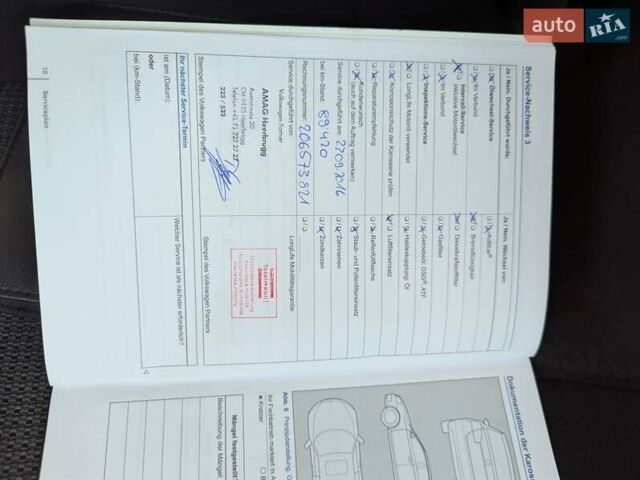 auto RIA.com
Service-Nachweis 3
Ja / Nein. Durchgeführt wurde:
Ölwechsel-Service
Im Verbund
Intervall-Service
inklusive Motorölwechsel
Im Verbund
Inspektions-Service
LongLife Motoröl verwendet
Korrosionsschutz der Karosserie prüfen
Reparaturempfehlung
Kundenwunsch
(auch auf dem Auftrag vermerken)
Service durchgeführt am: 27.09.2016
bei km-Stand: 89420
Rechnungsnummer: 206573821
Service durchgeführt von
Volkswagen Partner
AMAG Heerbrugg
CH-9435 Heerbrugg
Stempel des Volkswagen Partners
Ja / Nein. Wechsel von:
AdBlue®
Bremsflüssigkeit
Dieselkraftstofffilter
Gasfilter
Getriebeöl: DSG®, ATF
Haldexkupplung: Öl
Luftfiltereinsatz
Reifenfüllflasche
Staub- und Pollenfiltereinsatz
Zahnriemen
Zündkerzen
LongLife Mobilitätsgarantie:
Totalmobil!
Stempel des Volkswagen Partners
Ihr nächster Service-Termin
ist am (Datum):
oder
bei (km-Stand):
Welcher Service ist als nächster erforderlich?
10 Serviceplan
Dokumentation der Karos
Abb. 6 Prinzipdarstellung.
Ihr Fachbetrieb markiert in A
Kratzer
Mängel festgestellt?
Beschreibung der Mängel: